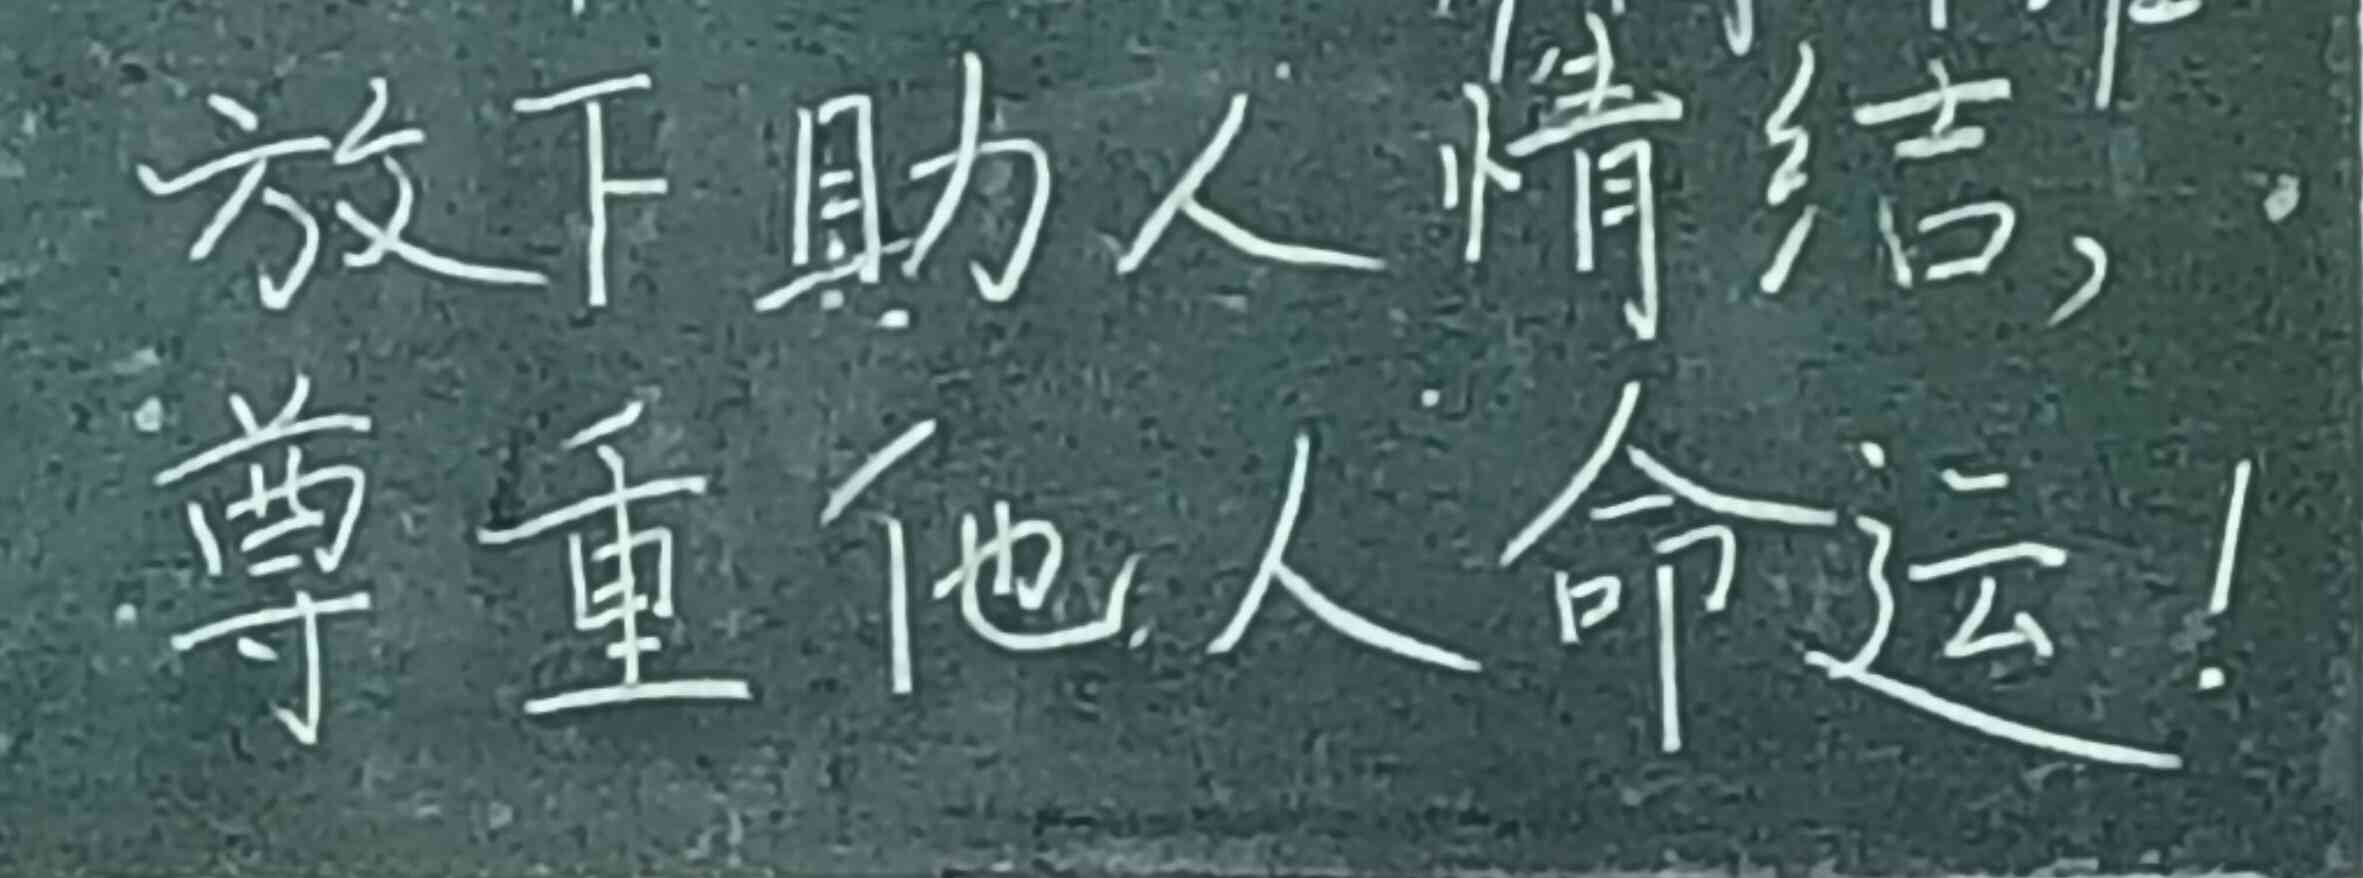 放下助人情结，
尊重他人命运！